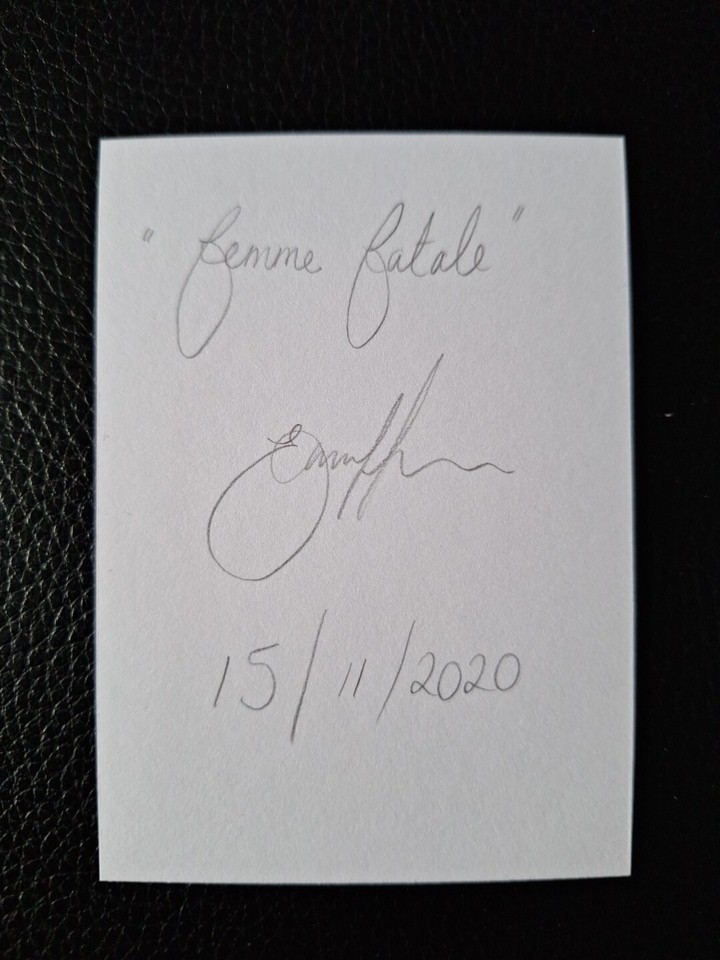 "femme fatale"
15/11/2020